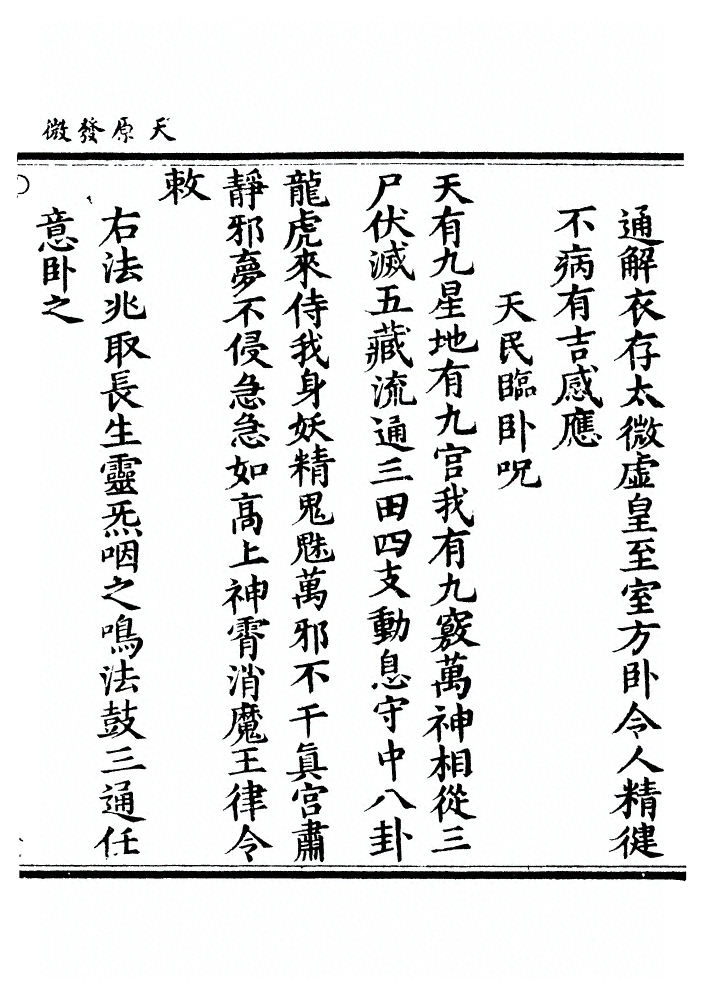 天原發微
通解衣存太微虛皇至室方卧令人精徤
不病有吉感應
天民臨卧呪
天有九星地有九宮我有九竅萬神相從三
尸伏滅五藏流通三田四支動息守中八卦
龍虎來侍我身妖精鬼魅萬邪不干眞宮肅
靜邪夢不侵急急如高上神霄消魔王律令
敕
右法兆取長生靈炁咽之鳴法鼓三通任
意卧之